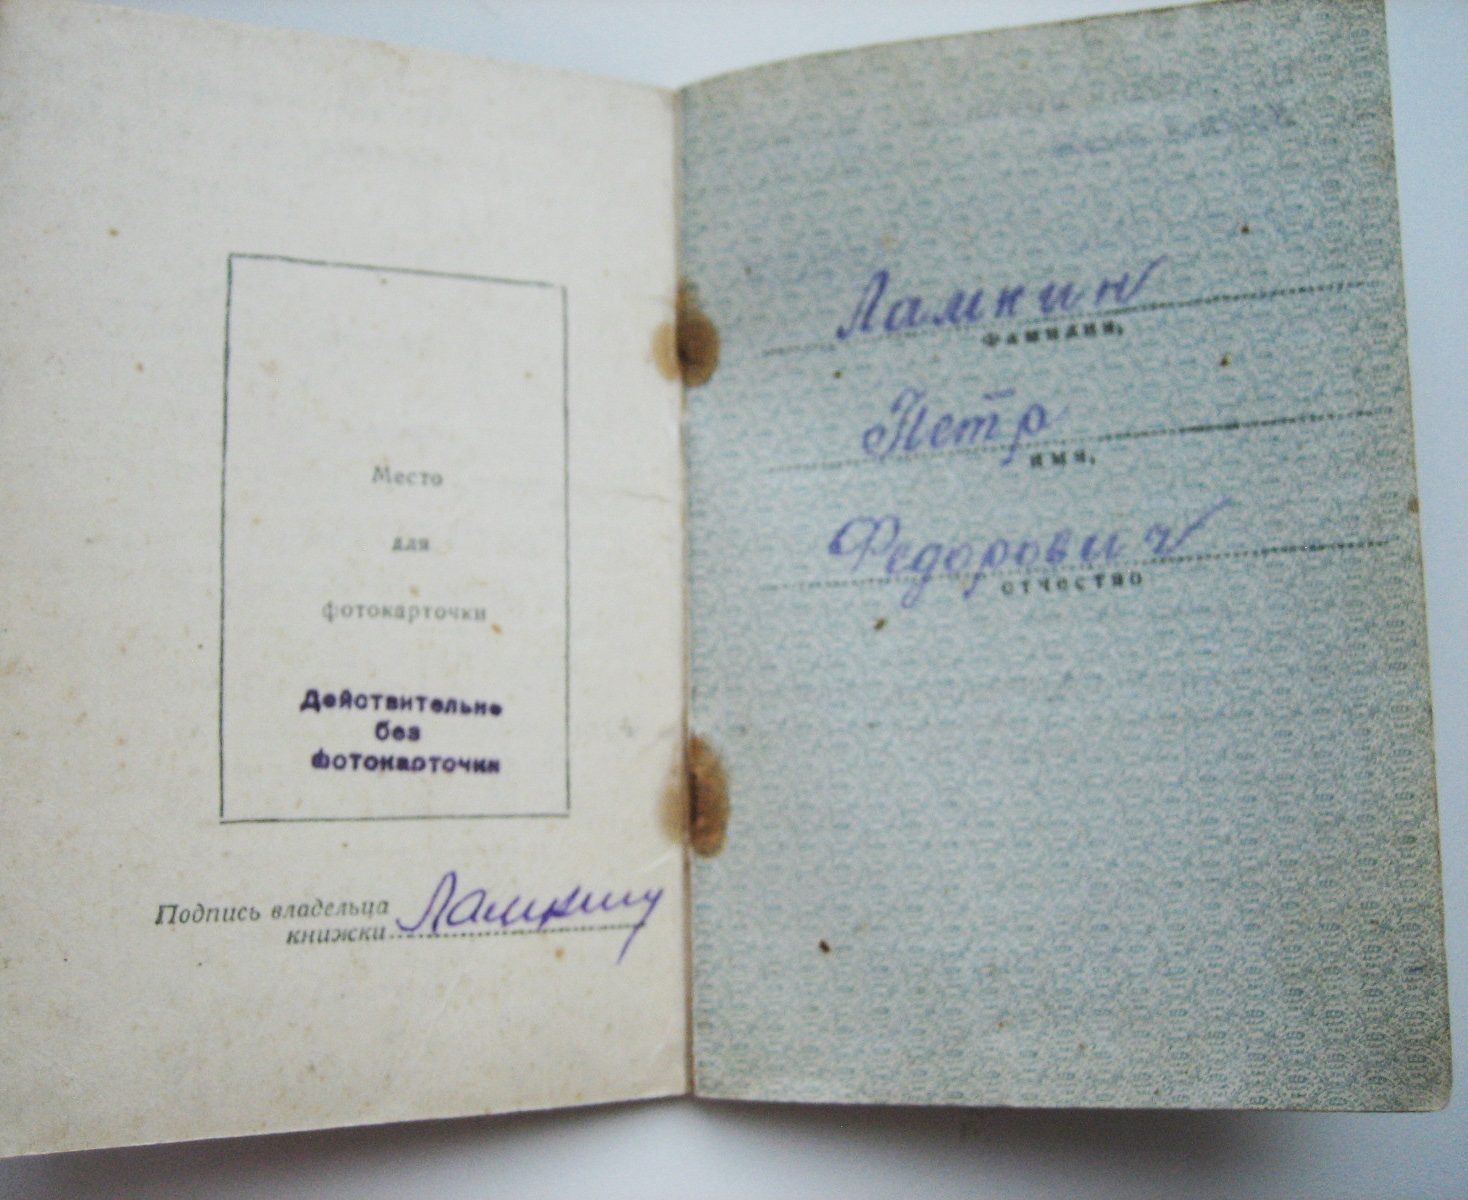 Место
для
фотокарточки
Действительно
без
фотокарточки
Подпись владельца
книжки Лямкин
Лямкин
фамилия,
Петр
имя,
Федорович
отчество